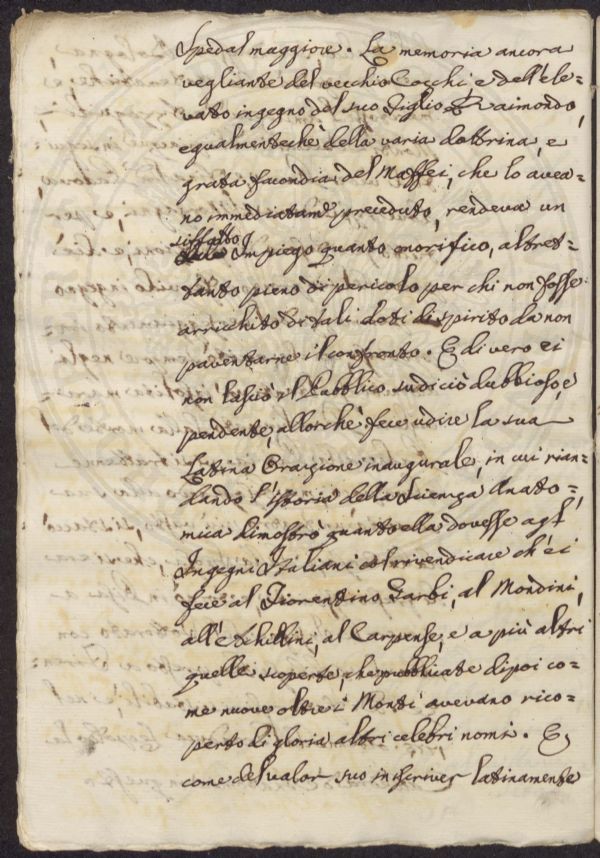 Spedal maggiore. La memoria ancora
vegliante del vecchio Cocchi, e dell'ele-
vato ingegno del suo figlio Raimondo,
egualmentechè della varia dottrina, e
grata facondia del Maffei, che lo avea-
no immediatam.e preceduto, rendeva un
siffatto
Impiego quanto onorifico, altret-
tanto pieno di pericolo per chi non fosse
arricchito di tali doti di spirito da non
paventarne il confronto. E di vero ei
non lasciò il Pubblico Iudiciò dubbioso, e
pendente, allorchè fece udire la sua
Latina Orazione inaugurale, in cui rian-
dando l'istoria della Scienza Anato-
mica dimostrò quanto ella dovesse agl'
Ingegni Italiani col rivendicare ch'ei
fece al Fiorentino Garbi, al Mondini,
all'Achillini, al Carpense, e a più altri
quelle scoperte che pubblicate dipoi co-
me nuove oltre i Monti avevano rico-
perto di gloria altri celebri nomi. E
come del valor suo in scriver latinamente